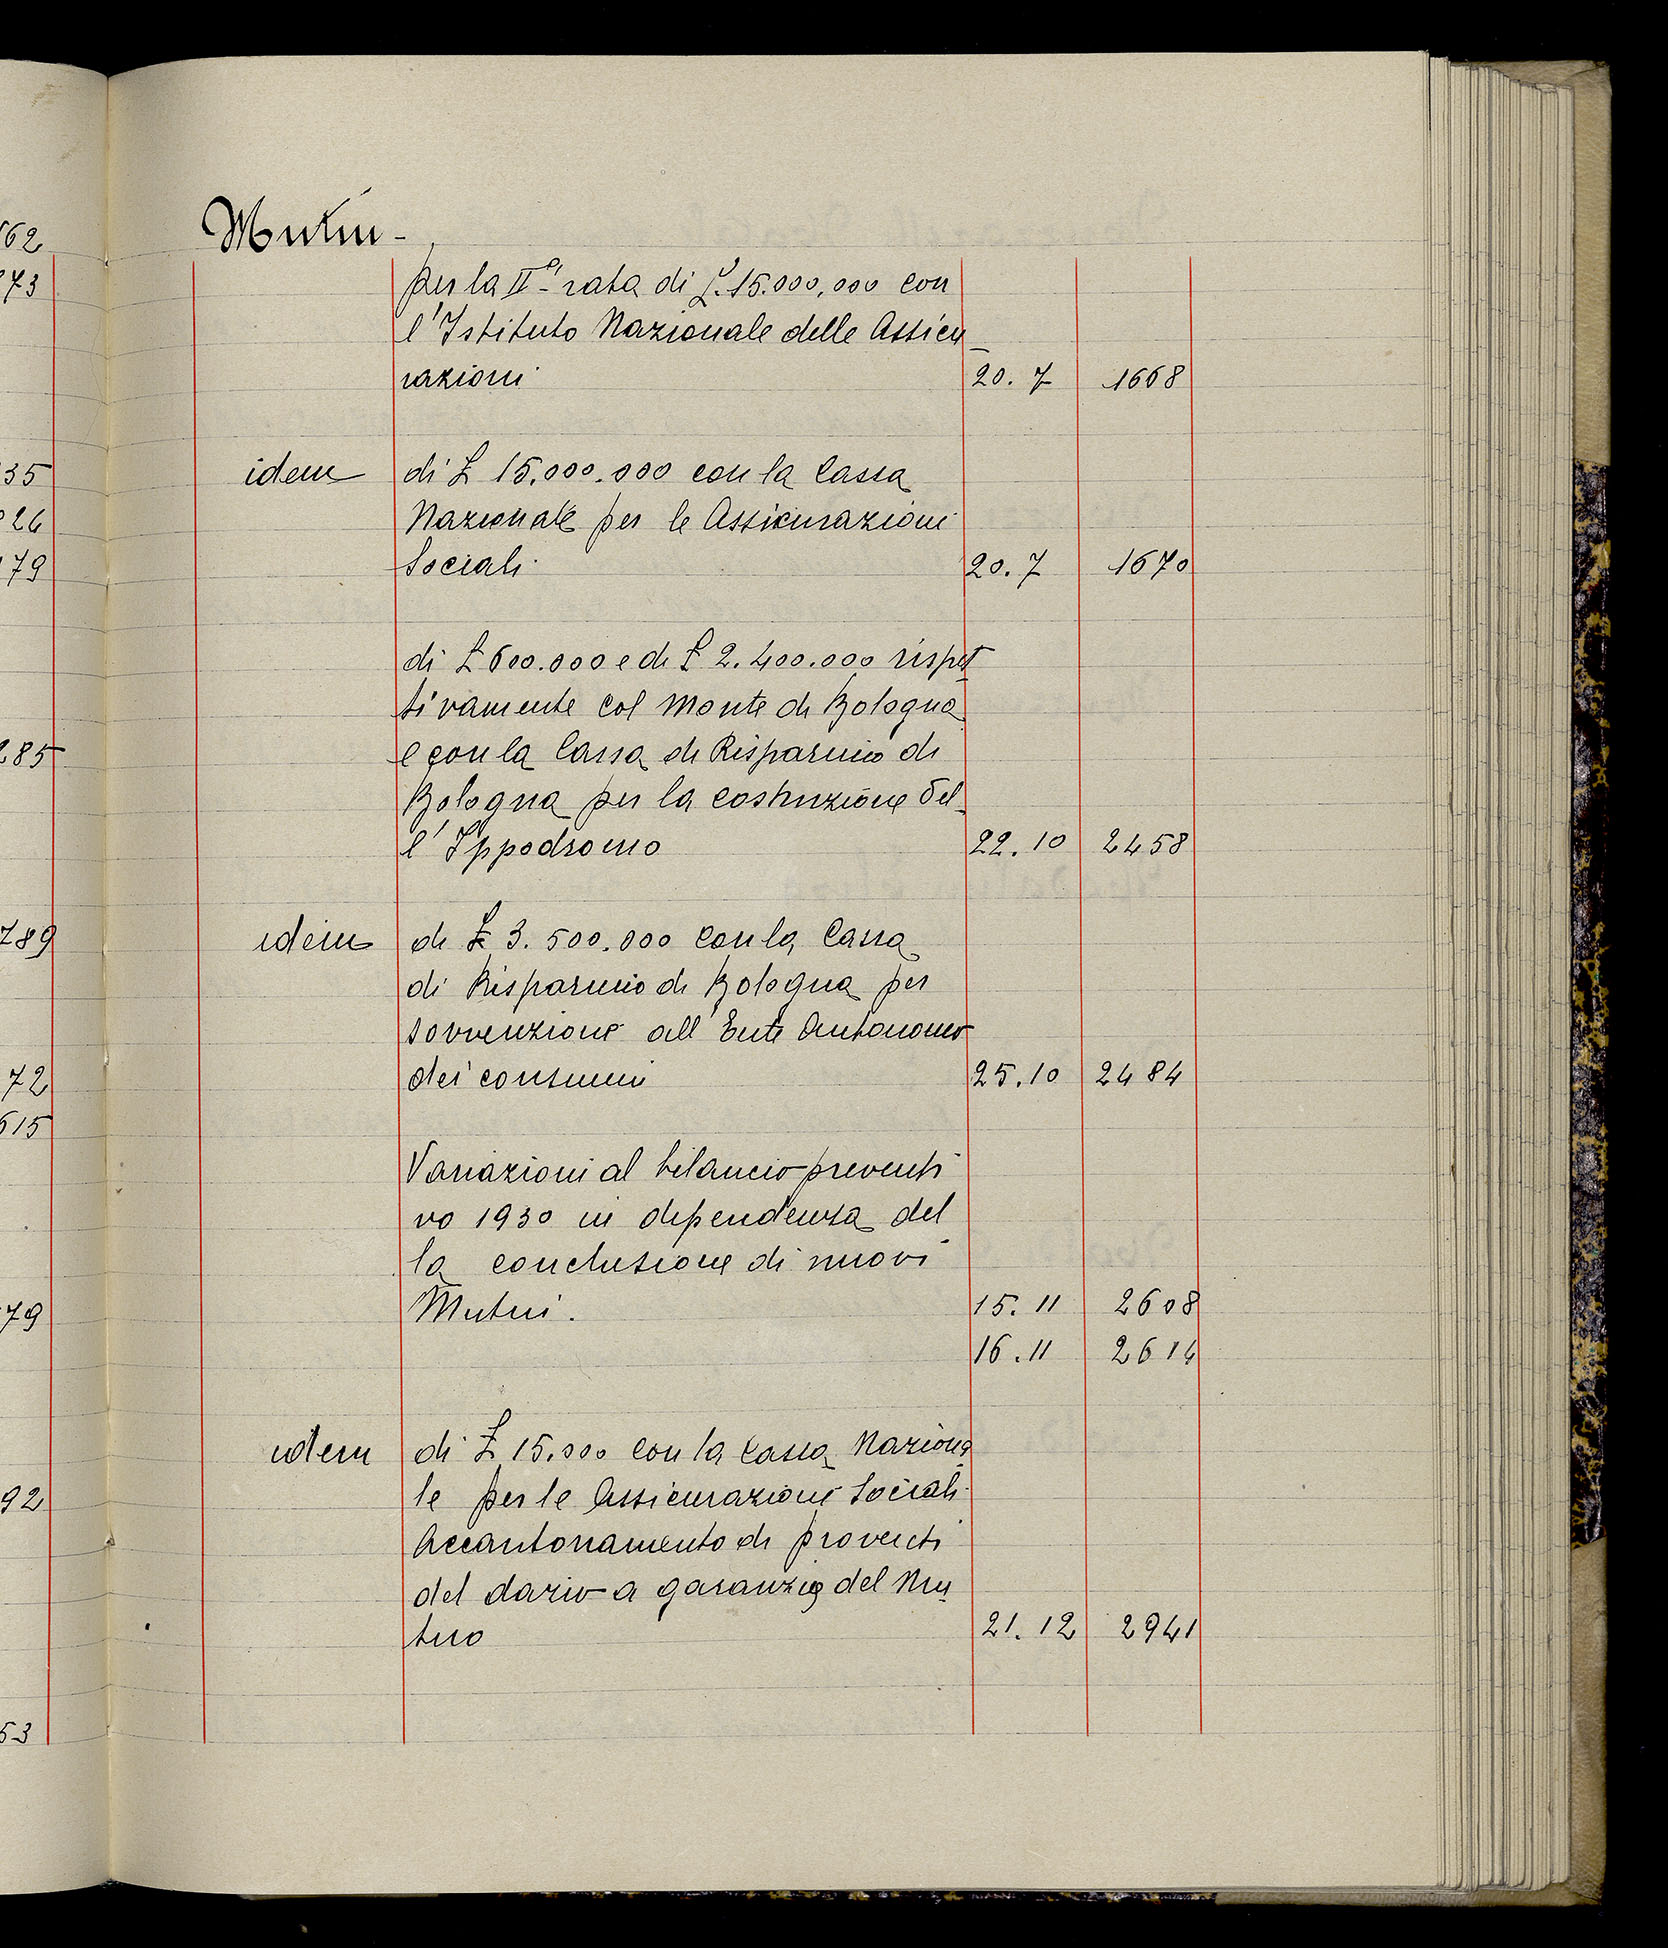 Mutui -
per la IIª rata di £. 15.000,000 con
l'Istituto Nazionale delle Assicu_
razioni 20. 7 1668
idem di £ 15.000.000 con la Cassa
Nazionale per le Assicurazioni
Sociali. 20. 7 1670
di £ 600.000 e di £ 2.400.000 rispet
tivamente col Monte di Bologna
e con la Cassa di Risparmio di
Bologna per la costruzione del
l'Ippodromo 22.10 2458
idem di £ 3.500.000 con la Cassa
di Risparmio di Bologna per
sovvenzione all'Ente Autonomo
dei consumi 25.10 2484
Variazioni al bilancio preventi
vo 1930 in dipendenza del
la conclusione di nuovi
Mutui. 15. 11 2608
16. 11 2614
idem di £ 15.000 con la Cassa Naziona
le per le Assicurazioni Sociali.
Accantonamento di proventi
del dazio a garanzia del Mu
tuo 21. 12 2941
62
73
35
26
79
285
789
72
615
79
92
53